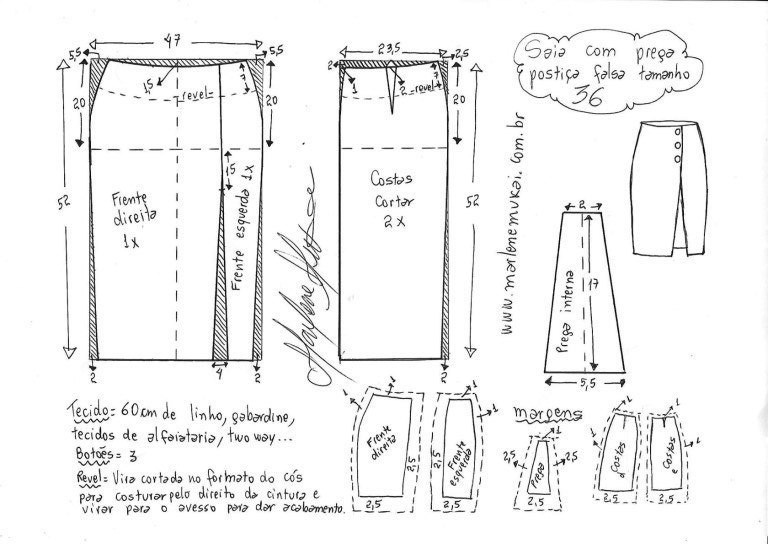 Saia com prega
postiça falsa tamanho
36
47
5,5
5,5
20
1,5
revel
7
20
52
15
Frente
direita
1x
Frente esquerda 1x
2
4
2
23,5
2,5
2
1
2
revel
7
20
52
Costas
Cortar
2x
2
www.marlenemukai.com.br
2
Prega interna
17
5,5
Tecido = 60cm de linho, gabardine,
tecidos de alfaiataria, two way...
Botões = 3
Revel = Vira cortada no formato do cós
para costurar pelo direito da cintura e
virar para o avesso para dar acabamento.
margens
1
1
Frente
direita
2,5
2,5
1
1
2,5
Frente
esquerda
2,5
1
2,5
2,5
Prega
2,5
1
1
Costas
d
2,5
1
1
Costas
e
2,5